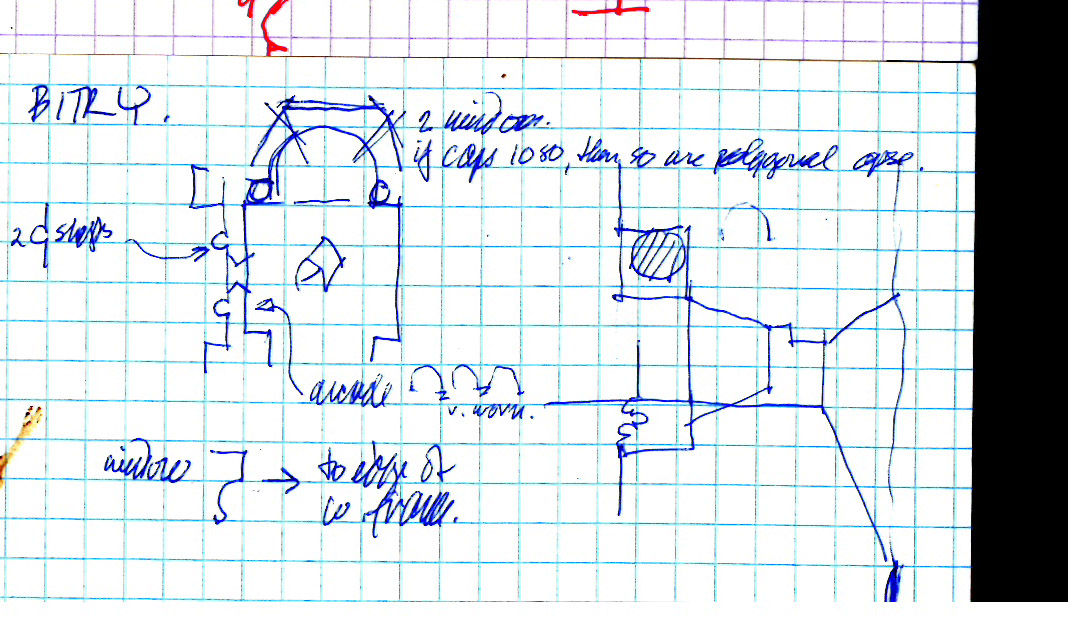 BITRY.
2 windows.
if caps 1080, then so are polygonal apse.
2 steps
arcade
v. worn.
window → to edge of
w. frame.